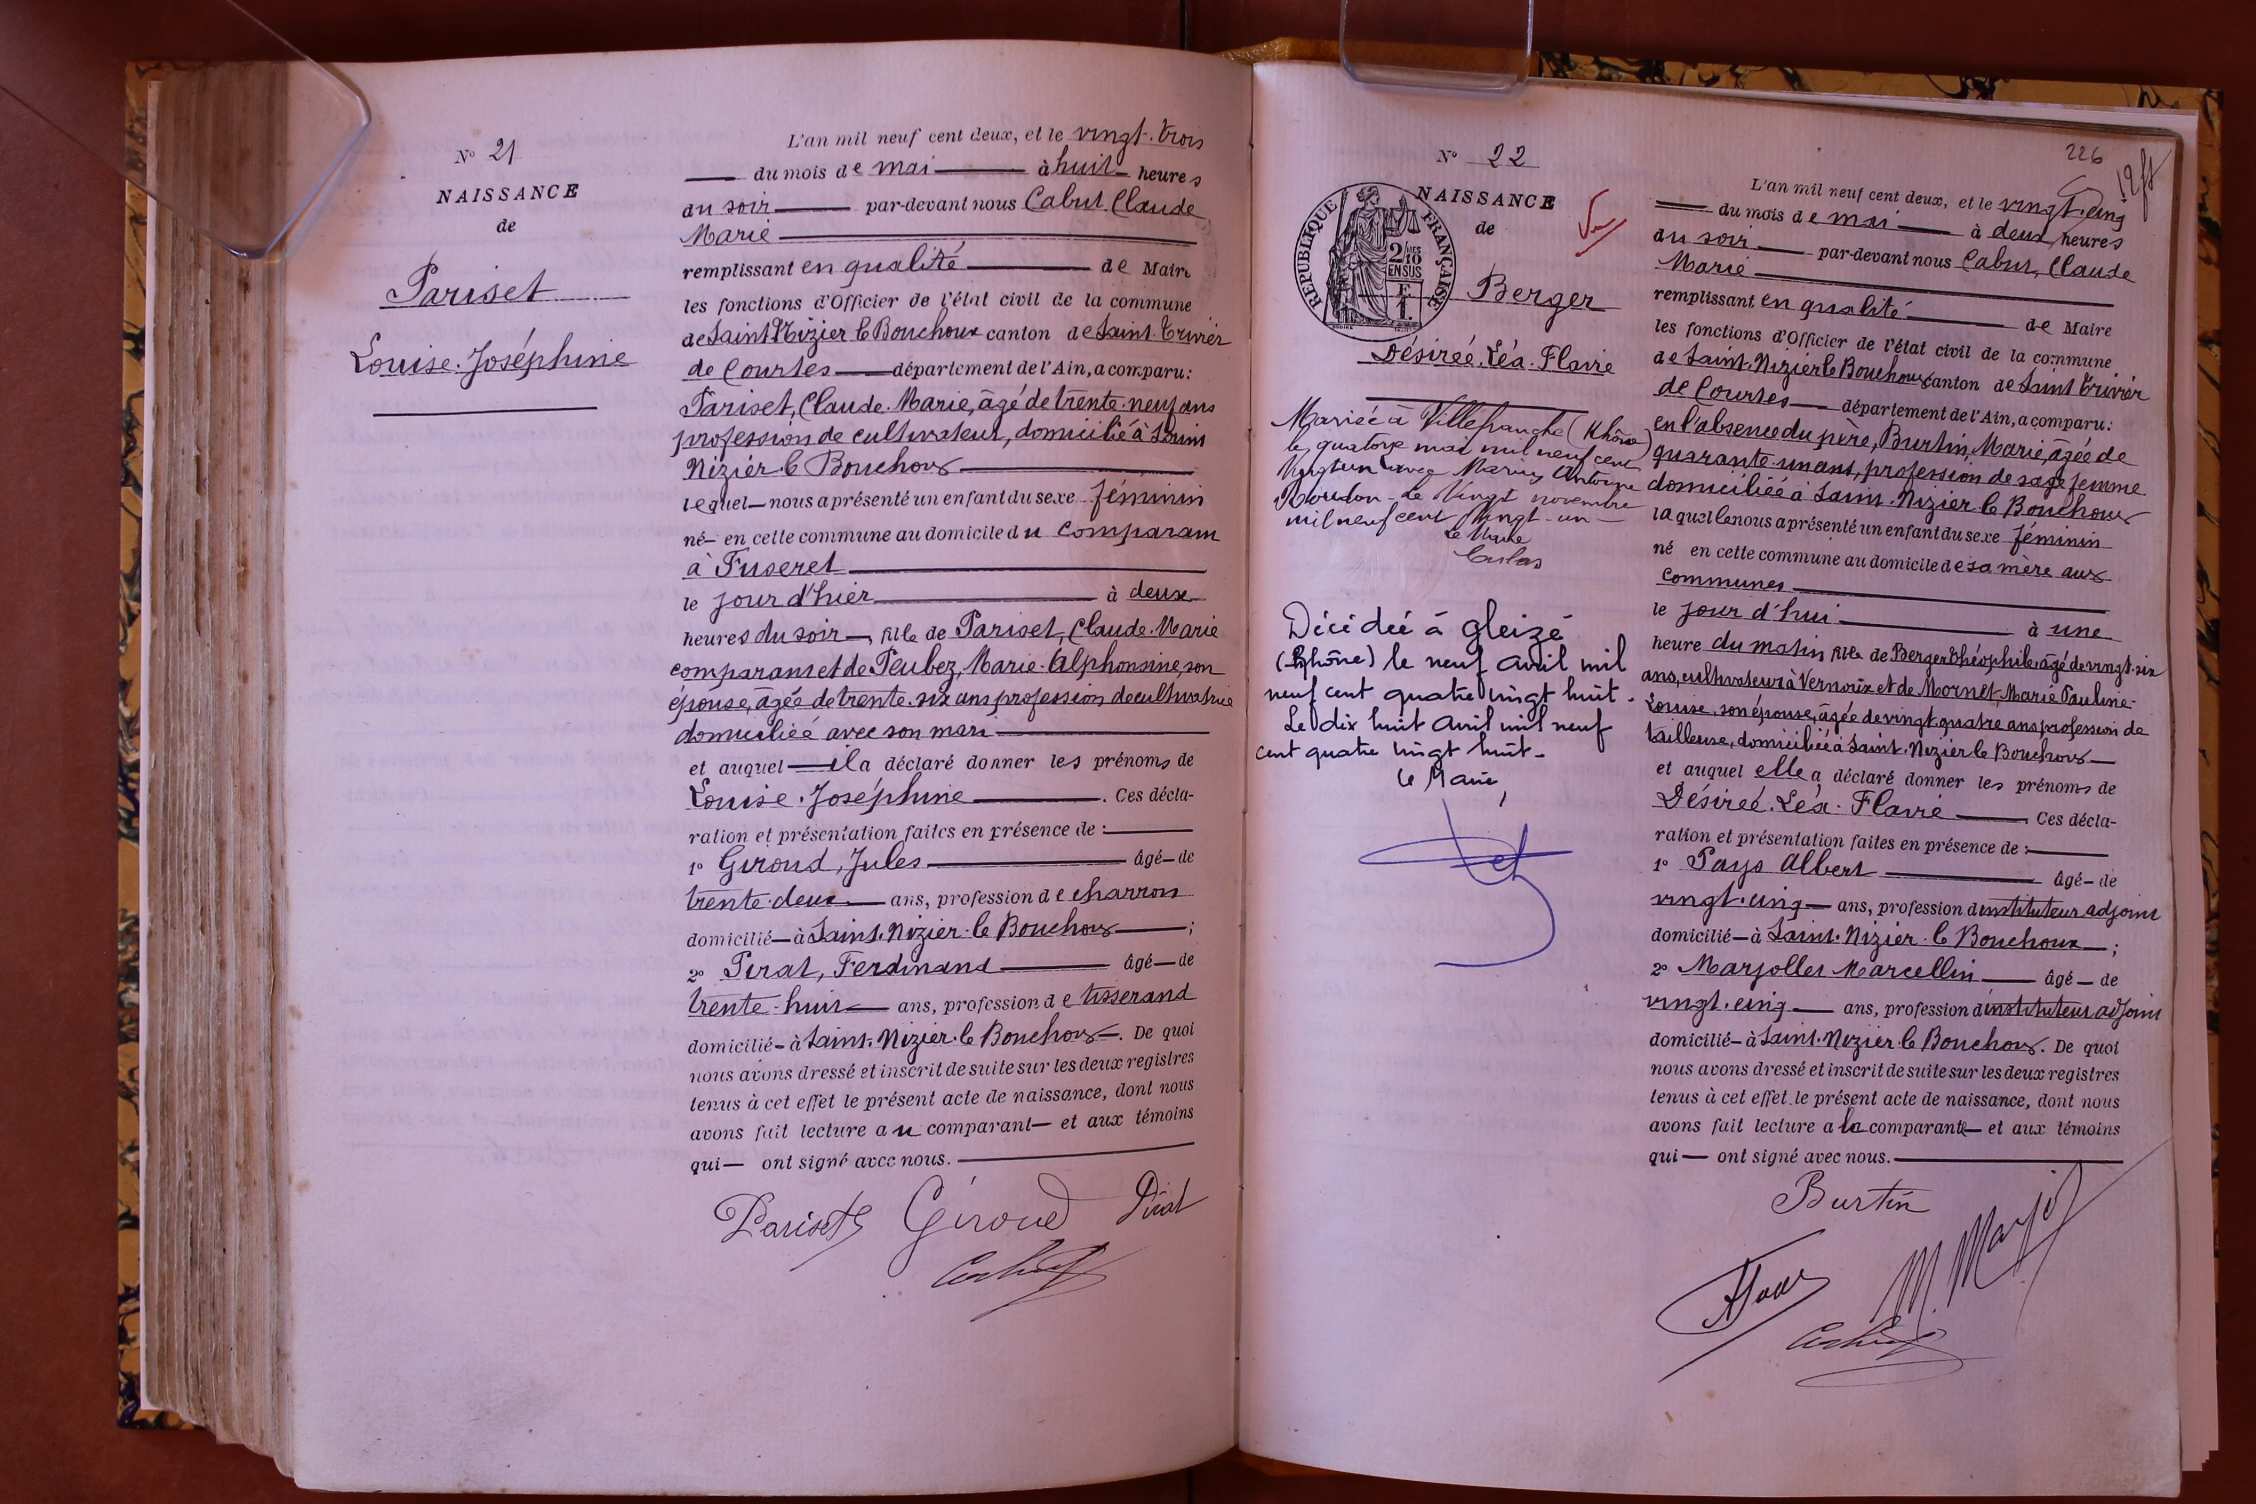 N° 21
NAISSANCE
de
Pariset
Louise. Joséphine
L'an mil neuf cent deux, et le vingt. trois
du mois de mai à huit heures
du soir par-devant nous Cabut Claude
Marie
remplissant en qualité de Maire
les fonctions d'Officier de l'état civil de la commune
de Saint. Nizier le Bouchoux canton de Saint. Trivier
de Courtes département de l'Ain, a comparu:
Pariset, Claude. Marie, âgé de trente. neuf ans
profession de cultivateur, domicilié à Saint
Nizier. le Bouchoux
lequel nous a présenté un enfant du sexe féminin
né en cette commune au domicile du comparant
à Fuseret
le jour d'hier à deux
heures du soir, fille de Pariset, Claude. Marie
comparant et de Peubez, Marie. Alphonsine, son
épouse, âgée de trente. six ans profession de cultivatrice
domiciliée avec son mari
et auquel il a déclaré donner les prénoms de
Louise. Joséphine. Ces décla-
ration et présentation faites en présence de :
1° Giroud, Jules âgé de
trente. deux ans, profession de charron
domicilié à Saint. Nizier. le Bouchoux ;
2° Pirat, Ferdinand âgé de
trente. huit ans, profession de tisserand
domicilié à Saint. Nizier. le Bouchoux. De quoi
nous avons dressé et inscrit de suite sur les deux registres
tenus à cet effet le présent acte de naissance, dont nous
avons fait lecture au comparant et aux témoins
qui ont signé avec nous.
Pariset Giroud Pirat
226
N° 22
NAISSANCE
de
RÉPUBLIQUE FRANÇAISE
2/10 EN SUS
Berger
Désirée. Léa. Flavie
Mariée à Villefranche (Rhône)
le quatorze mai mil neuf cent
vingt un avec Marius Antoine
le vingt novembre
mil neuf cent vingt-un
Le Maire
Décédée à gleizé
(Rhône) le neuf avril mil
neuf cent quatre vingt huit.
Le dix huit avril mil neuf
cent quatre vingt huit-
Le Maire,
L'an mil neuf cent deux, et le vingt. cinq
du mois de mai à deux heures
du soir par-devant nous Cabut, Claude
Marie
remplissant en qualité de Maire
les fonctions d'Officier de l'état civil de la commune
de Saint. Nizier le Bouchoux canton de Saint Trivier
de Courtes département de l'Ain, a comparu:
en l'absence du père, Burtin, Marie, âgée de
quarante. un ans, profession de sage femme
domiciliée à Saint. Nizier. le Bouchoux
laquelle nous a présenté un enfant du sexe féminin
né en cette commune au domicile de sa mère aux
communes
le jour d'hui à une
heure du matin fille de Berger Théophile, âgé de vingt. six
ans, cultivateur à Vernoux et de Mornet, Marie Pauline
Louise, son épouse, âgée de vingt quatre ans profession de
tailleuse, domiciliée à Saint. Nizier le Bouchoux
et auquel elle a déclaré donner les prénoms de
Désirée. Léa. Flavie. Ces décla-
ration et présentation faites en présence de :
1° Pays Albert âgé de
vingt. cinq ans, profession d'instituteur adjoint
domicilié à Saint. Nizier. le Bouchoux ;
2° Marjollet Marcellin âgé de
vingt. cinq ans, profession d'instituteur adjoint
domicilié à Saint. Nizier. le Bouchoux. De quoi
nous avons dressé et inscrit de suite sur les deux registres
tenus à cet effet le présent acte de naissance, dont nous
avons fait lecture à la comparante et aux témoins
qui ont signé avec nous.
Burtin